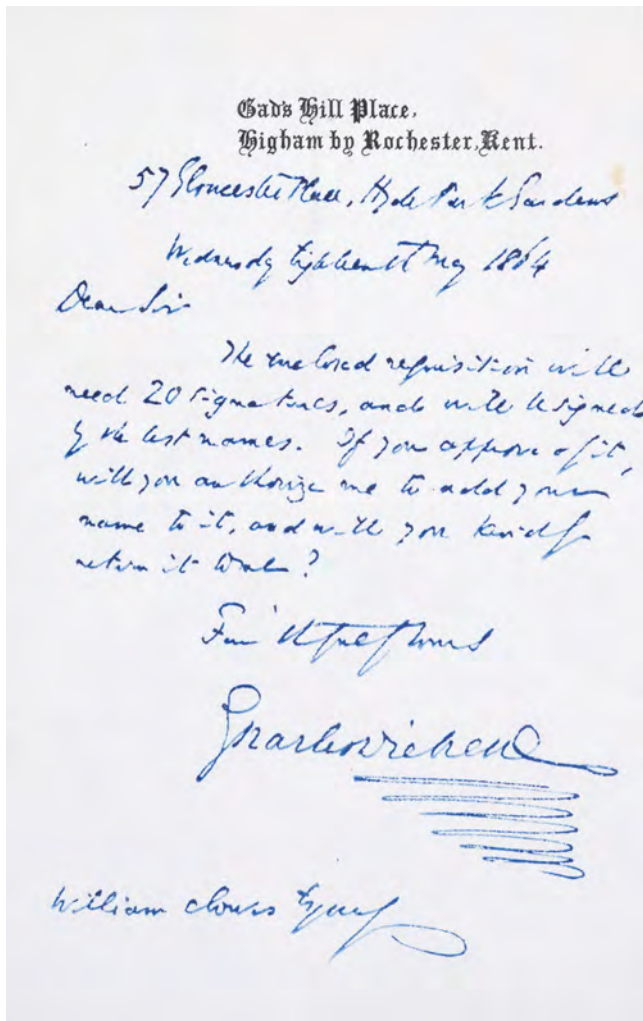 Gad's Hill Place,
Higham by Rochester, Kent.
57 Gloucester Place, Hyde Park Gardens
Wednesday Eighteenth May 1864
Dear Sir
The enclosed requisition will
need 20 signatures, and will be signed
by the best names. If you approve of it,
will you authorize me to add your
name to it, and will you kindly
return it to me?
Faithfully Yours
Charles Dickens
William Clowes Esquire